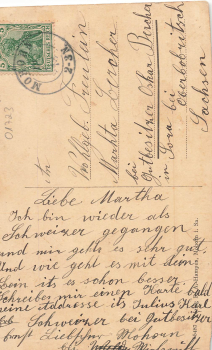 MOHORN
2-3N
01723
An
Wohlgeb. Fräulein
Martha Lercher
bei
Gutbesitzer Oskar Bercha
in Sora bei
Oberbobritsch
Sachsen
Liebe Martha
Ich bin wieder als
Schweizer gegangen
und mir gehts es sehr gut
Und wie geht es mit dem
Bein ist es schon besser
Schreibe mir einen Karte bald
meine Addresse ist Julius Karl
Schweizer bei Gutbesitzer
Mohorn